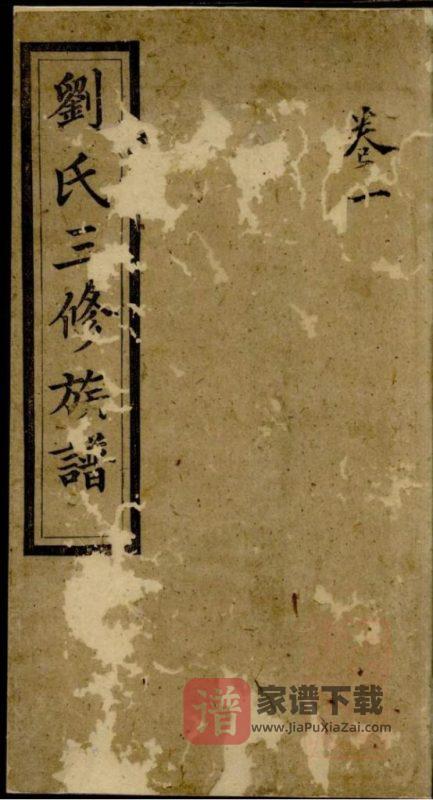 卷一
劉氏三修族譜
谱 家谱下载
www.JiaPuXiaZai.com